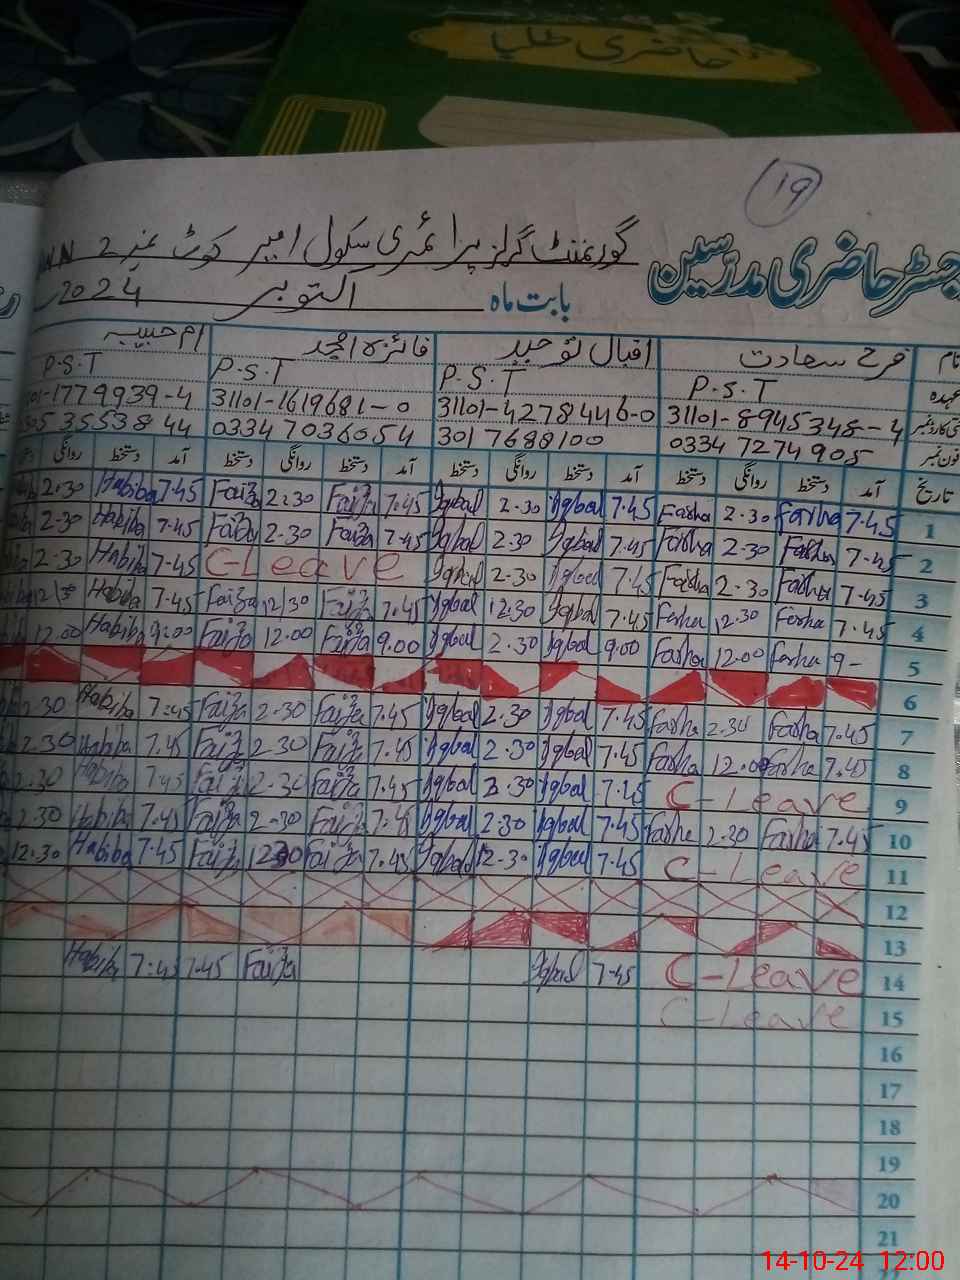 حاضری طلبا
19
گورنمنٹ گرلز پرائمری سکول امیر کوٹ نمبر 2
رجسٹر حاضری مدرسین
بابت ماہ اکتوبر 2024
نام فرح سعادت اقبال توحید فائزہ امجد ام حبیبہ
عہدہ P.S.T P.S.T P.S.T P.S.T
31101-8945348-4 31101-4278446-0 31101-1619681-0 01-1779939-4
فون نمبر 0334 7274905 301 7688100 0334 7036054
تاریخ آمد دستخط روانگی دستخط آمد دستخط روانگی دستخط آمد دستخط روانگی دستخط آمد دستخط روانگی
1 7.45 Farha 2.30 Farha 7.45 Iqbal 2.30 Iqbal 7.45 Faiza 2.30 Faiza 7.45 Habiba 2.30
2 7.45 Farha 2.30 Farha 7.45 Iqbal 2.30 Iqbal 7.45 Faiza 2.30 Faiza 7.45 Habiba 2.30
3 7.45 Farha 2.30 Farha 7.45 Iqbal 2.30 Iqbal C-Leave 7.45 Habiba 2.30
4 7.45 Farha 12.30 Farha 7.45 Iqbal 12.30 Iqbal 7.45 Faiza 12/30 Faiza 7.45 Habiba 12/30
5 9- Farha 12.00 Farha 9.00 Iqbal 2.30 Iqbal 9.00 Faiza 12.00 Faiza 9:00 Habiba 12.00
6
7 7.45 Farha 2.30 Farha 7.45 Iqbal 2.30 Iqbal 7.45 Faiza 2.30 Faiza 7:45 Habiba 2.30
8 7.45 Farha 12.00 Farha 7.45 Iqbal 2.30 Iqbal 7.45 Faiza 2.30 Faiza 7.45 Habiba 2.30
9 C-Leave 7.45 Iqbal 2.30 Iqbal 7.45 Faiza 2.30 Faiza 7.45 Habiba 2.30
10 7.45 Farha 2.30 Farha 7.45 Iqbal 2.30 Iqbal 7.45 Faiza 2-30 Faiza 7.45 Habiba 2.30
11 C-Leave 7.45 Iqbal 12.30 Iqbal 7.45 Faiza 1230 Faiza 7.45 Habiba 12.30
12
13
14 C-Leave 7.45 Iqbal Faiza 7.45 7:45 Habiba
15 C-Leave
16
17
18
19
20
21
14-10-24 12:00